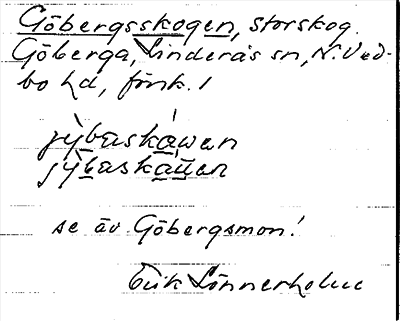 Göbergsskogen, storskog.
Göberga, Linderås sn, N. Ved-
bo hd, fönk. 1
jỳbaskáwen
jỳbaskáuen
se äv. Göbergsmon!
Erik Lönnerholm